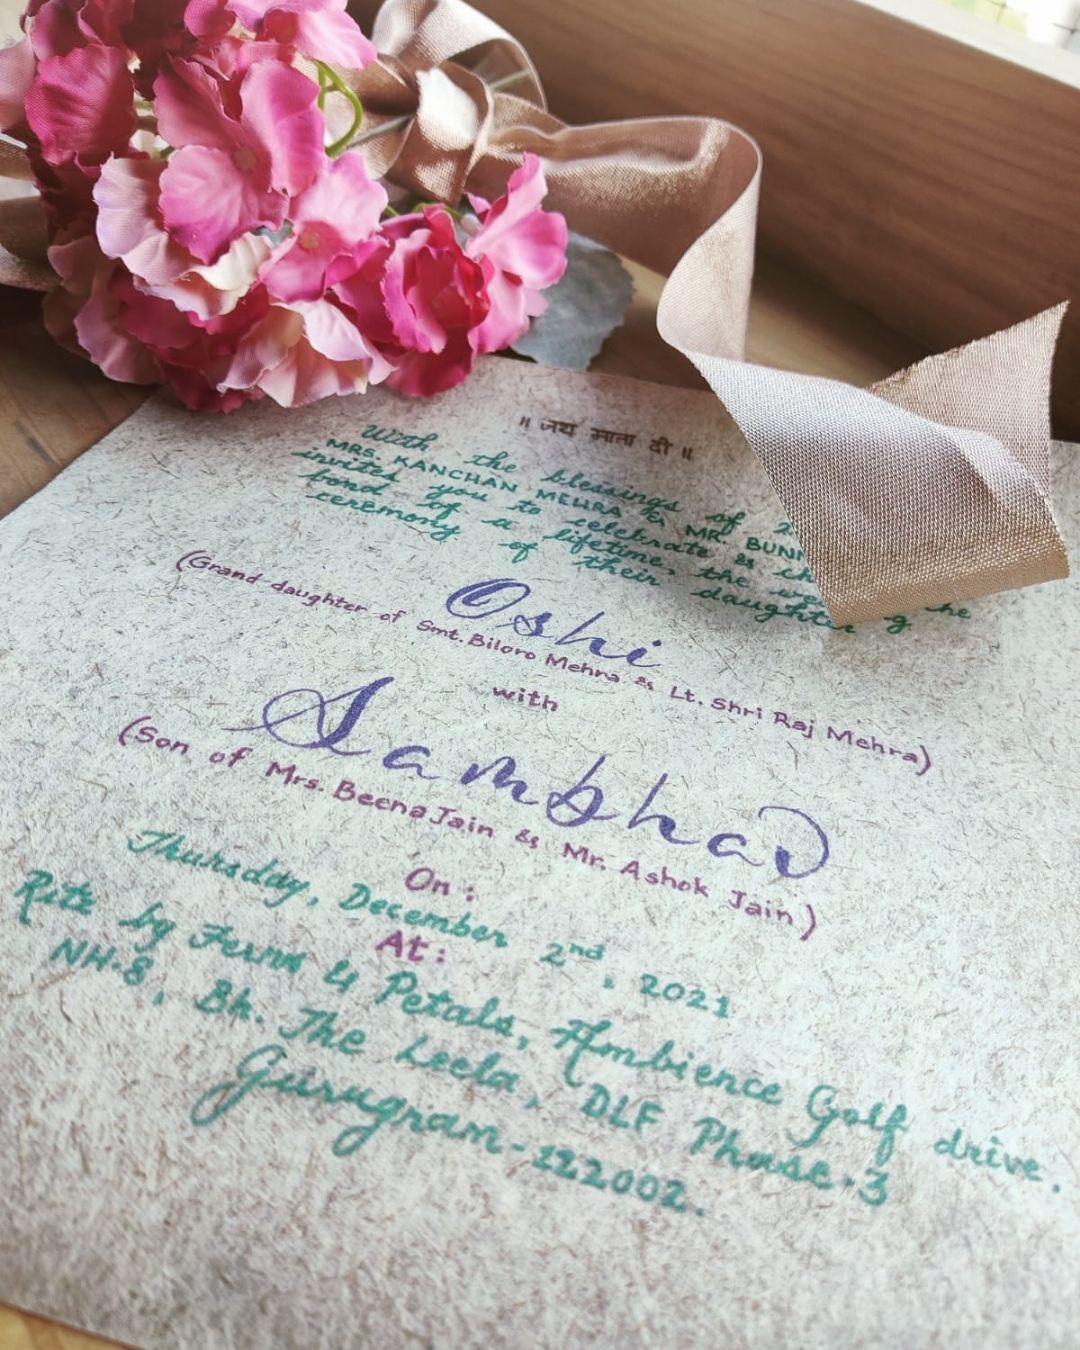 ॥ जय माता दी ॥
With the blessings of
MRS. KANCHAN MEHRA & MR. BUNN
invites you to celebrate & the
bond of a lifetime, the we the
ceremony of their daughter
Oshi
(Grand daughter of Smt. Biloro Mehra & Lt. Shri Raj Mehra)
with
Sambhav
(Son of Mrs. Beena Jain & Mr. Ashok Jain)
On :
Thursday, December 2nd, 2021
At :
Ritz by Ferns & Petals, Ambience Golf drive.
NH-8, Bh. The Leela, DLF Phase-3
Gurugram-122002.